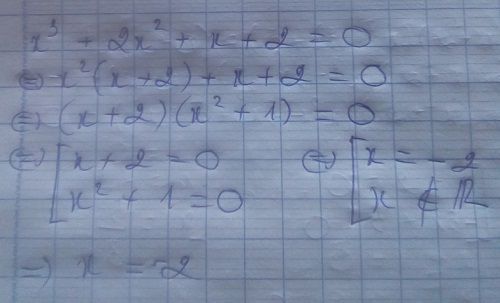 x³ + 2x² + x + 2 = 0
⇔ x²(x + 2) + x + 2 = 0
⇔ (x + 2)(x² + 1) = 0
⇔ [ x + 2 = 0 ⇔ [ x = -2
x² + 1 = 0 x ∉ ℝ
⇒ x = -2